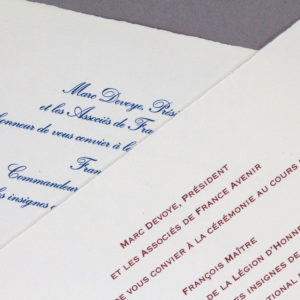 Marc Devoye, Prés
et les Associés de Fra
onneur de vous convier à le
Fran
Commandeur
les insignes
Marc Devoye, Président
et les Associés de France Avenir
de vous convier à la cérémonie au cours
François Maître
de la Légion d'Honne
insignes de